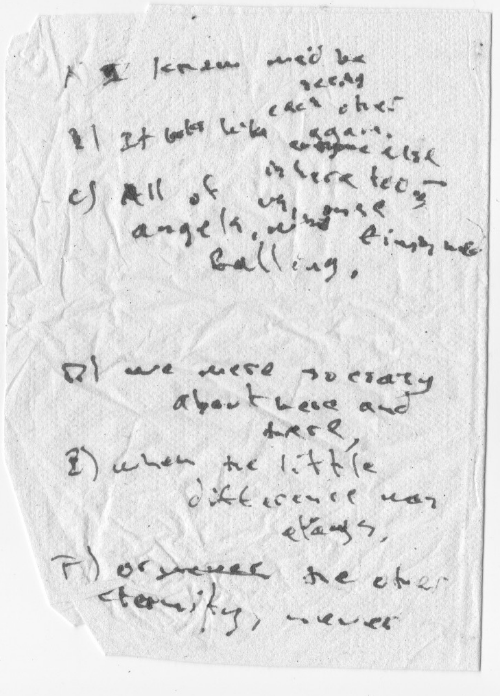 A I knew we'd be
seeing
each other
B) It looks like again.
everyone else
is here too
C) All of us, once
angels, and time
falling.
D) we were so crazy
about here and
there,
E) when the little
difference was
always.
F) or never the other
eternity, never